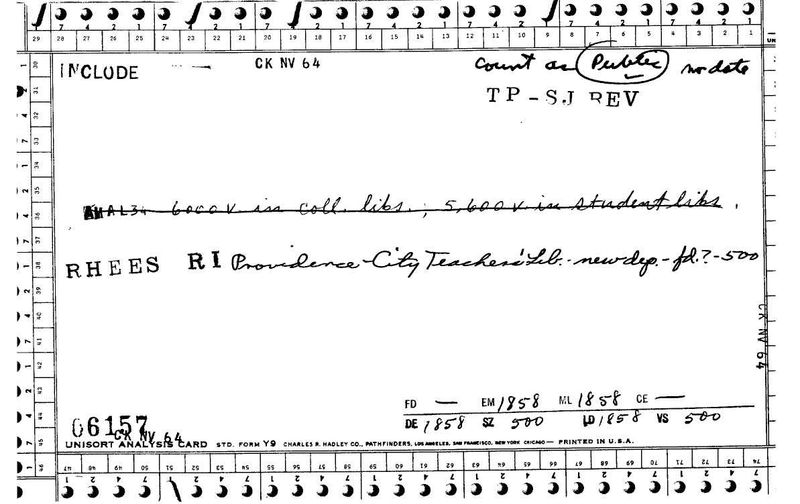 INCLUDE — CK NV 64 Count as Public no date
TP-SJ REV
AMAL34 6000 V in coll. libs.; 5,600 V in student libs.
RHEES RI Providence-City Teachers' Lib.- new dep.- fd.?-500
CK NV 64
FD — EM 1858 ML 1858 CE —
DE 1858 SZ 500 LD 1858 VS 500
06157
CK NV 64
UNISORT ANALYSIS CARD STD. FORM Y9 CHARLES R. HADLEY CO., PATHFINDERS, LOS ANGELES, SAN FRANCISCO, NEW YORK CHICAGO — PRINTED IN U.S.A.